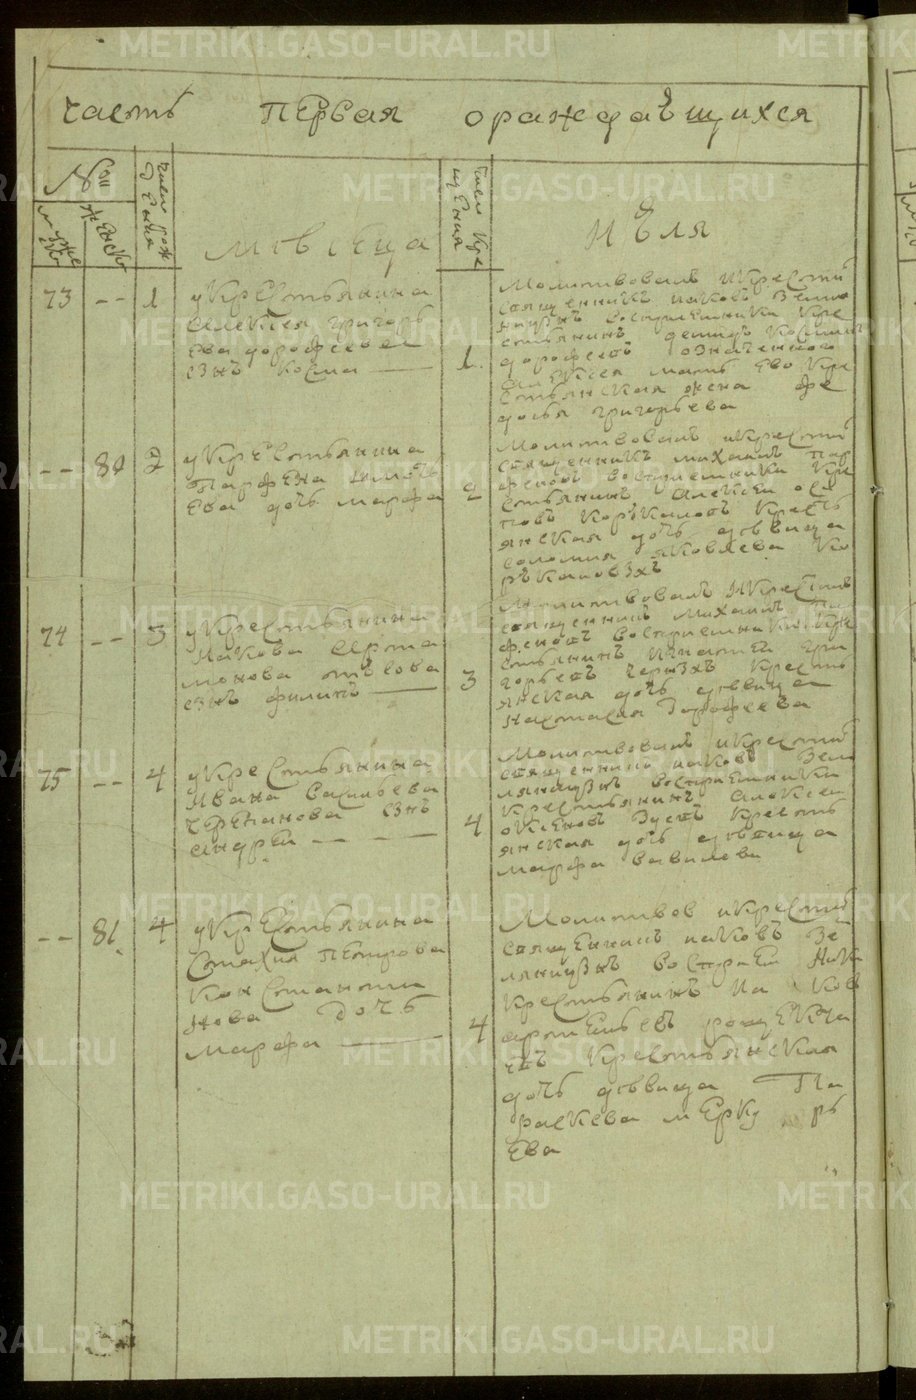 METRIKI.GASO-URAL.RU
часть первая ораждаѣщихся
№
мужес
женск
число рож
дения
мѣсеца
число кре
щения
иѣля
73 -- 1
укрестьянина
алексея григорь
ева дорофеева
снъ косма
1
Молитвовалъ икрестил
священникъ иаковъ Земля
ницынъ восприемники кре
стьянинъ
дорофеевъ означенного
алексея мать ево кре
стьянская жена фе
досья григорьева
-- 80 2
укрестьянина
Парфена
ева дочь марфа
2
Молитвовалъ икрестил
священникъ михаилъ пар
феновъ восприемники кре
стьянинъ алексеи оси
повъ коркиловъ кресть
янская дочь дѣвица
соломия яковлева ко
74 -- 3
укрестьянина
Иакова
снъ филипъ
3
Молитвовалъ икрестил
священникъ Михаилъ пар
феновъ восприемники кре
стьянинъ Игнатеи гри
горьевъ кресть
янская дочь дѣвица
настасия дорофеева
75 -- 4
укрестьянина
Ивана васильева
черепанова снъ
андреи
4
Молитвовалъ икрестил
священникъ иаковъ Земля
ницынъ восприемники
крестьянинъ алексеи
кресть
янская дочь дѣвица
марфа вавилева
-- 81 4
укрестьянина
Стахия петрова
константи
нова дочь
марфа
4
Молитвов икрестил
священникъ иаковъ Зе
мляницынъ восприем ники
крестьянинъ Иа ков
артемьевъ
крестьянская
дочь дѣвица Па
раскева меркурь
ева